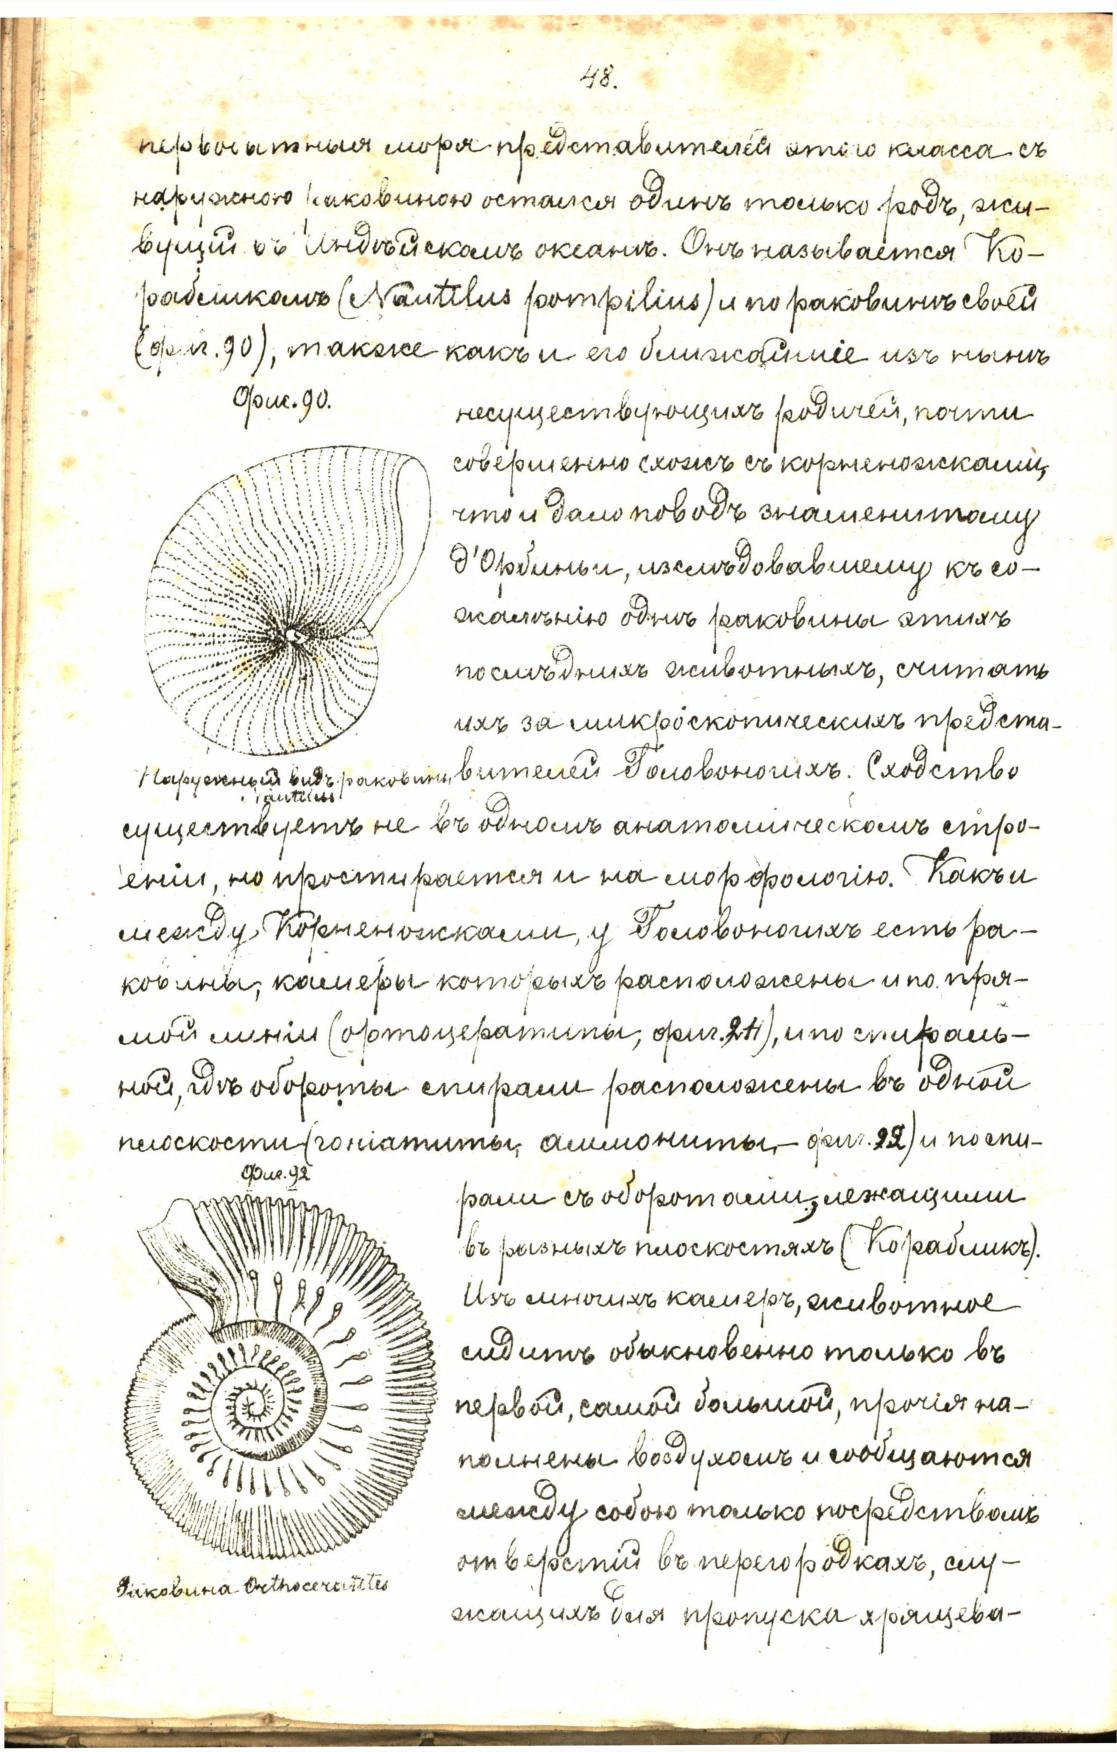 48.
первобытныя моря представителей этого класса съ
наружною раковиною остался одинъ только родъ, жи-
вущій въ Индѣйскомъ океанѣ. Онъ называется Ко-
рабликомъ (Nautilus pompilius) и по раковинѣ своей
(фиг. 90), также какъ и его ближайшіе изъ нынѣ
Фиг. 90.
несуществующихъ родичей, почти
совершенно схожъ съ корненожками,
что и дало поводъ знаменитому
д'Орбиньи, изслѣдовавшему къ со-
жалѣнію однѣ раковины этихъ
послѣднихъ животныхъ, считать
ихъ за микроскопическихъ предста-
Наружный видъ раковины
Nautilus
вителей Головоногихъ. Сходство
существуетъ не въ одномъ анатомическомъ стро-
еніи, но простирается и на морфологію. Какъ и
между Корненожками, у Головоногихъ есть ра-
ковины, камеры которыхъ расположены и по пря-
мой линіи (ортоцератиты, фиг. 24), и по спираль-
ной, гдѣ обороты спирали расположены въ одной
плоскости (гоніатиты, аммониты, - фиг. 92) и по спи-
Фиг. 92
рали съ оборотами, лежащими
въ разныхъ плоскостяхъ (Корабликъ).
Изъ многихъ камеръ, животное
сидитъ обыкновенно только въ
первой, самой большой, прочія на-
полнены воздухомъ и сообщаются
между собою только посредствомъ
отверстій въ перегородкахъ, слу-
жащихъ для пропуска хрящева-
Раковина Orthoceratites